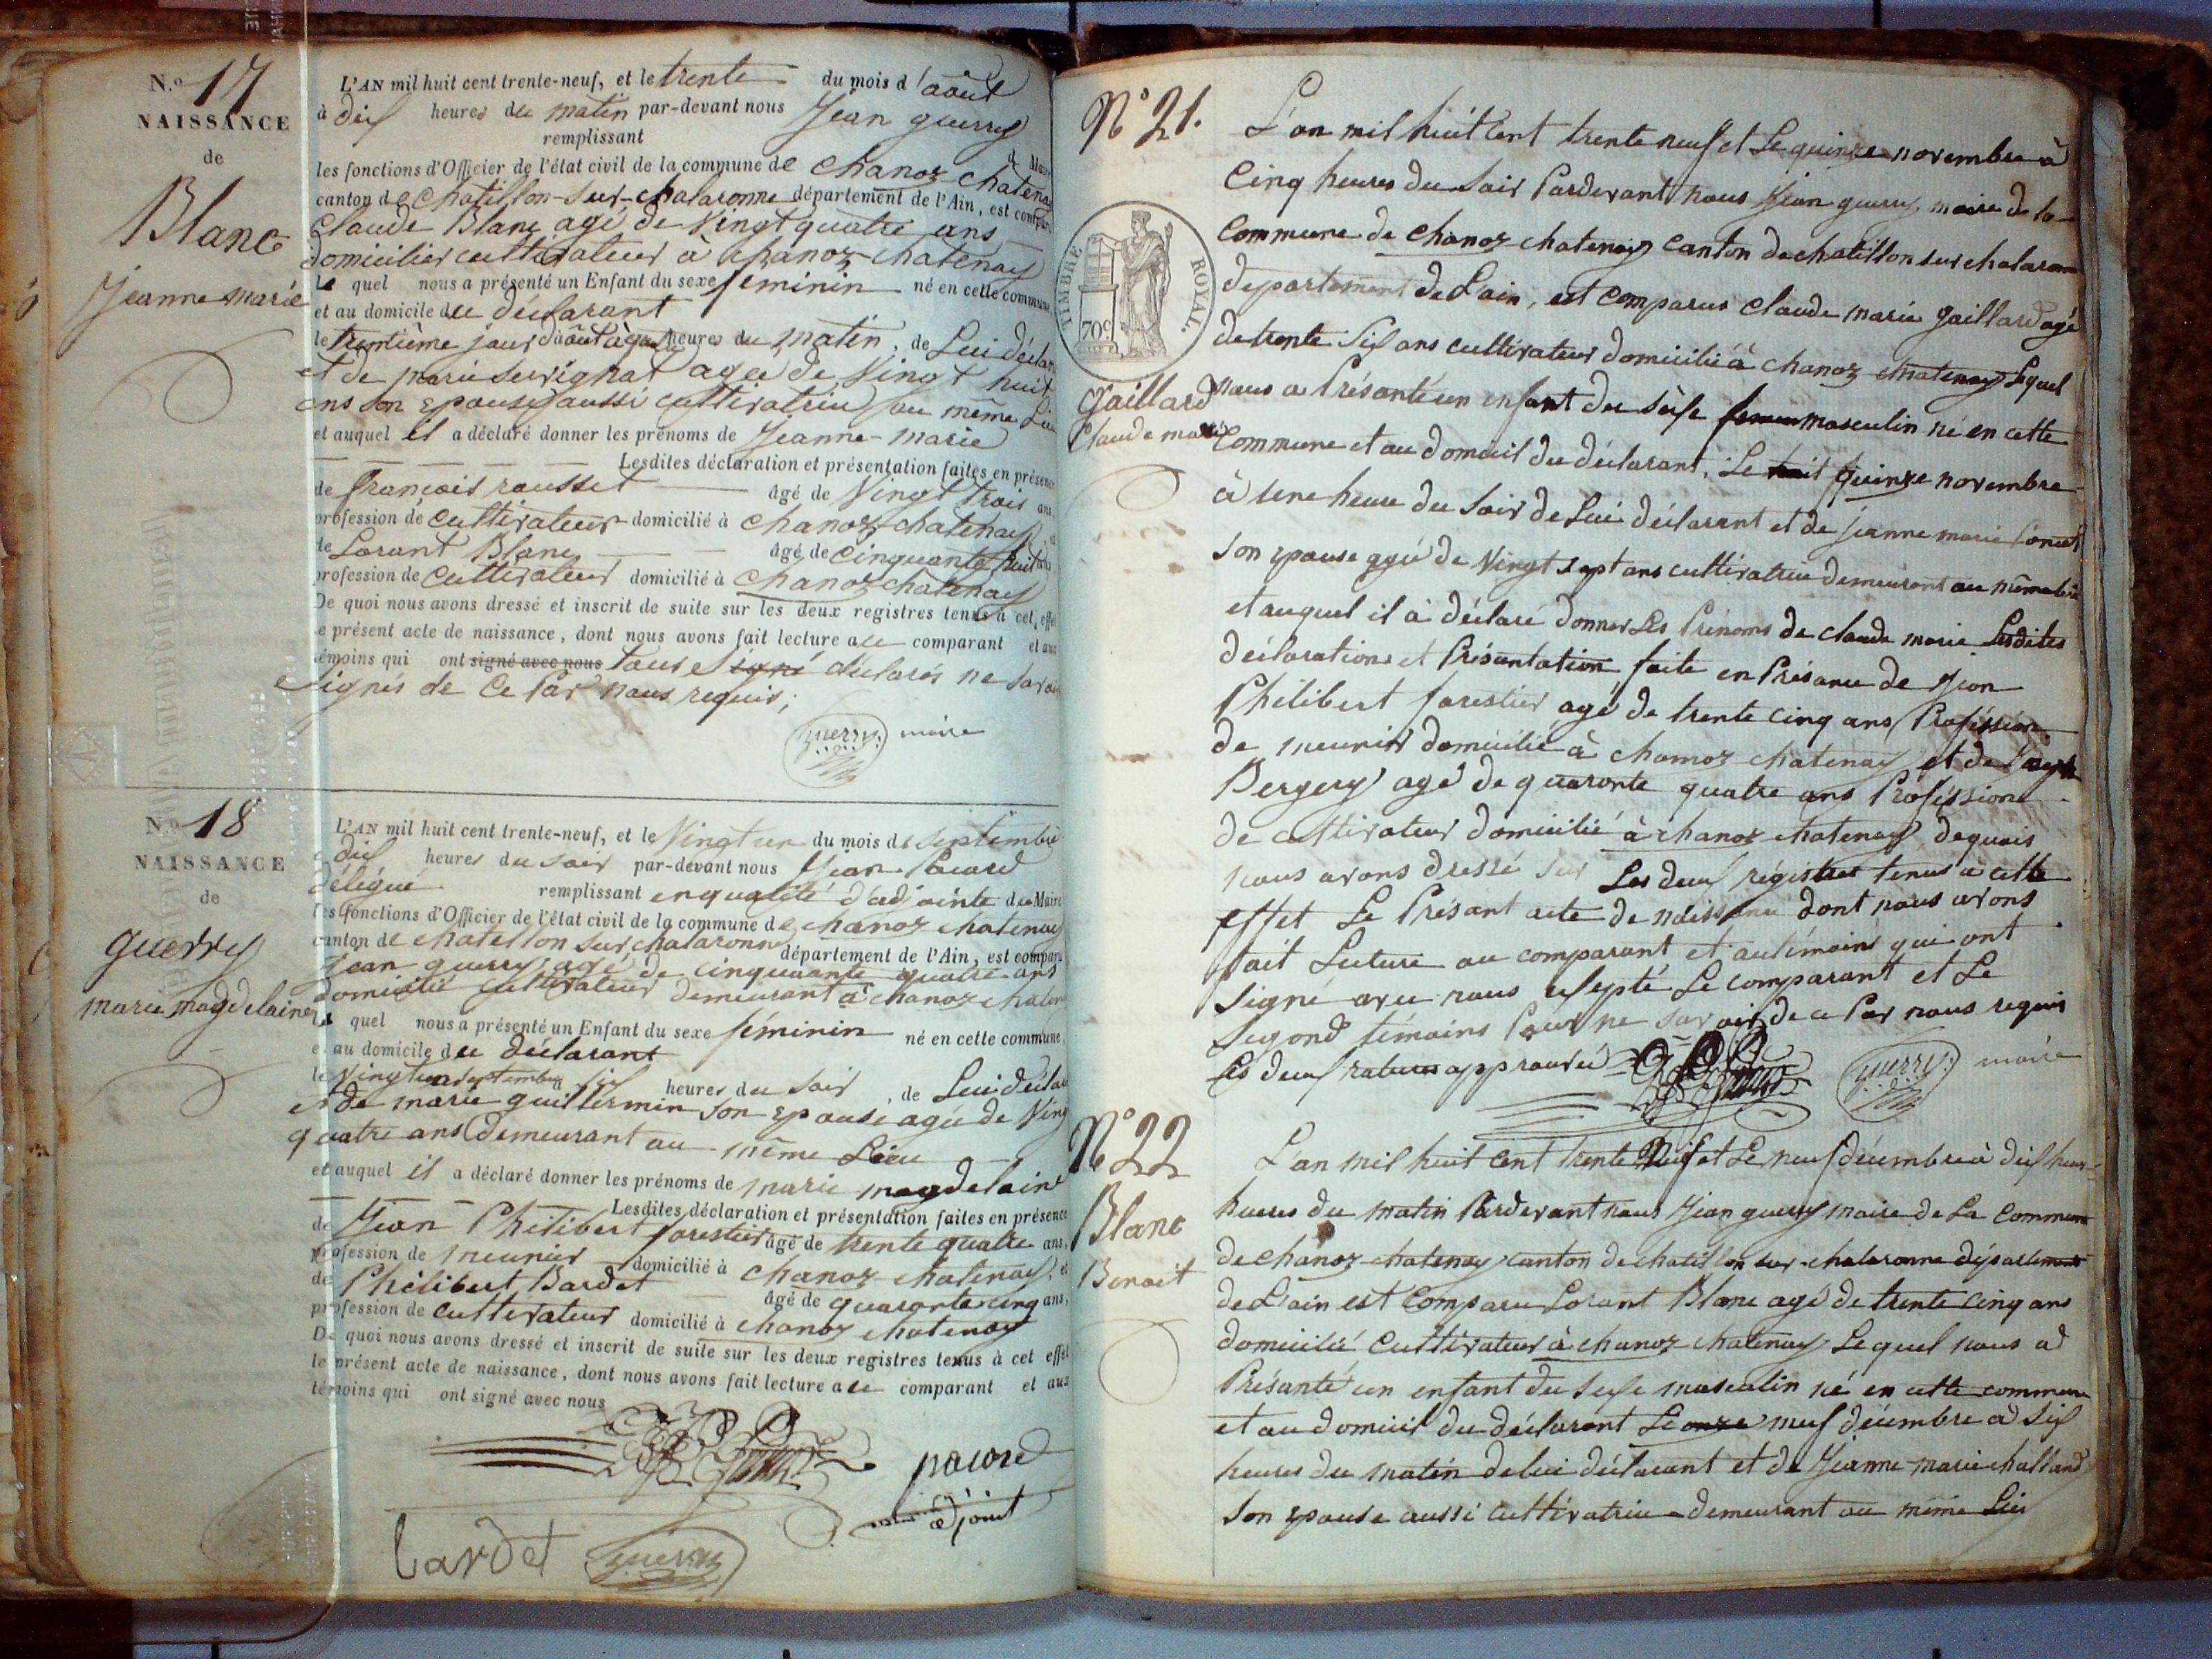 N.o 17
NAISSANCE
de
Blanc
Jeanne marie
L'AN mil huit cent trente-neuf, et le trente du mois d'août
à dix heures du matin par-devant nous Jean guerry
remplissant
les fonctions d'Officier de l'état civil de la commune de chanoz chatenay
canton de chatillon-sur-chalaronne département de l'Ain, est comparu
Claude Blanc agé de Vingt quatre ans
domicilier cultivateur à chanoz-chatenay
Le quel nous a présenté un Enfant du sexe féminin né en cette commune
et au domicile du déclarant
le trentième jour d'août à heures du matin, de Lui déclarant
et de marie Servignat agée de Vingt huit
ans son epouse aussi cultivatrice au même Lieu
et auquel il a déclaré donner les prénoms de Jeanne-marie
Lesdites déclaration et présentation faites en présence
de françois rousset âgé de Vingt trois ans,
profession de cultivateur domicilié à chanoz-chatenay
de Lorant Blanc âgé de cinquante huit
profession de cultivateur domicilié à chanoz chatenay
De quoi nous avons dressé et inscrit de suite sur les deux registres tenus à cet effet
le présent acte de naissance, dont nous avons fait lecture au comparant et aux
témoins qui ont signé avec nous tous signé déclarés ne savoir
signés de ce Par nous requis;
guerry maire
N.o 18
NAISSANCE
de
guerry
marie magdelaine
L'AN mil huit cent trente-neuf, et le Vingt un du mois de septembre
dix heures du soir par-devant nous Jean Pacard
délégué remplissant en qualité d'adjointe du Maire
les fonctions d'Officier de l'état civil de la commune de chanoz chatenay
canton de chatillon sur chalaronne département de l'Ain, est comparu
Jean guerry agé de cinquante quatre ans
domicilié cultivateur demeurant à chanoz chatenay
Le quel nous a présenté un Enfant du sexe féminin né en cette commune,
et au domicile du déclarant
le Vingt un septembre à six heures du soir, de Lui déclarant
et de marie guillermin son epouse agée de Vingt
quatre ans demeurant au même Lieu
et auquel il a déclaré donner les prénoms de marie magdelaine
Lesdites déclaration et présentation faites en présence
de Jean Philibert forestier âgé de trente quatre ans,
profession de meunier domicilié à chanoz chatenay, et
de Philibert Bardet âgé de quarante cinq ans,
profession de cultivateur domicilié à chanoz chatenay
De quoi nous avons dressé et inscrit de suite sur les deux registres tenus à cet effet
le présent acte de naissance, dont nous avons fait lecture au comparant et aux
témoins qui ont signé avec nous
pacard
adjoint
bardet guerry
N° 21.
TIMBRE ROYAL.
70c
Gaillard
Claude marie
L'an mil huit cent trente neuf et Le quinze novembre à
Cinq heures du Soir Pardevant nous Jean guerry maire de la
Commune de chanoz chatenay canton de chatillon sur chalaronne
département de L'ain, est comparus Claude marie gaillard agé
de trente Six ans cultivateur domicilié à chanoz chatenay Lequel
nous a Présanté un enfant du sèxe femin masculin né en cette
Commune et au domicil du déclarant. Le huit quinze novembre
à une heure du Soir de Lui déclarant et de jeanne marie
son epouse agée de Vingt sept ans cultivatrice demeurant au même lieu
et auquel il à déclaré donner Les Prénoms de claude marie Lesdites
déclarations et Présantation faite en Présance de Jean
Philibert forestier agé de trente cinq ans Proféssion
de meunier domicilié à chanoz chatenay et de
Bergery agé de quaronte quatre ans Proféssion
de cultivateur domicilié à chanoz chatenay dequois
nous avons dressé sur Les deux régistres tenus à cette
effet Le Présant acte de naissance dont nous avons
fait Lecture au comparant et autémoins qui ont
Signé avec nous exepté Le comparant et Le
Segond témoins Pour ne savoir de ce Par nous requis
Les deux ratures approuvéé
guerry maire
N° 22
Blanc
Benoit
L'an mil huit cent trente Neuf et Le neuf décembre à dix heur
heures du matin Pardevant nous Jean guerry maire de La Commune
de chanoz-chatenay canton de chatillon sur-chalaronne département
de L'ain est Comparu Lorant Blanc agé de trente cinq ans
domicilié Cultivateur à chanoz chatenay Lequel nous a
Présanté un enfant du Sexe masculin né en cette commune
et au domicil du déclarant Le onze neuf décembre a Six
heures du matin de lui déclarant et de Jeanne-marie challand
Son epouse aussi cultivatrice demeurant au même Lieu